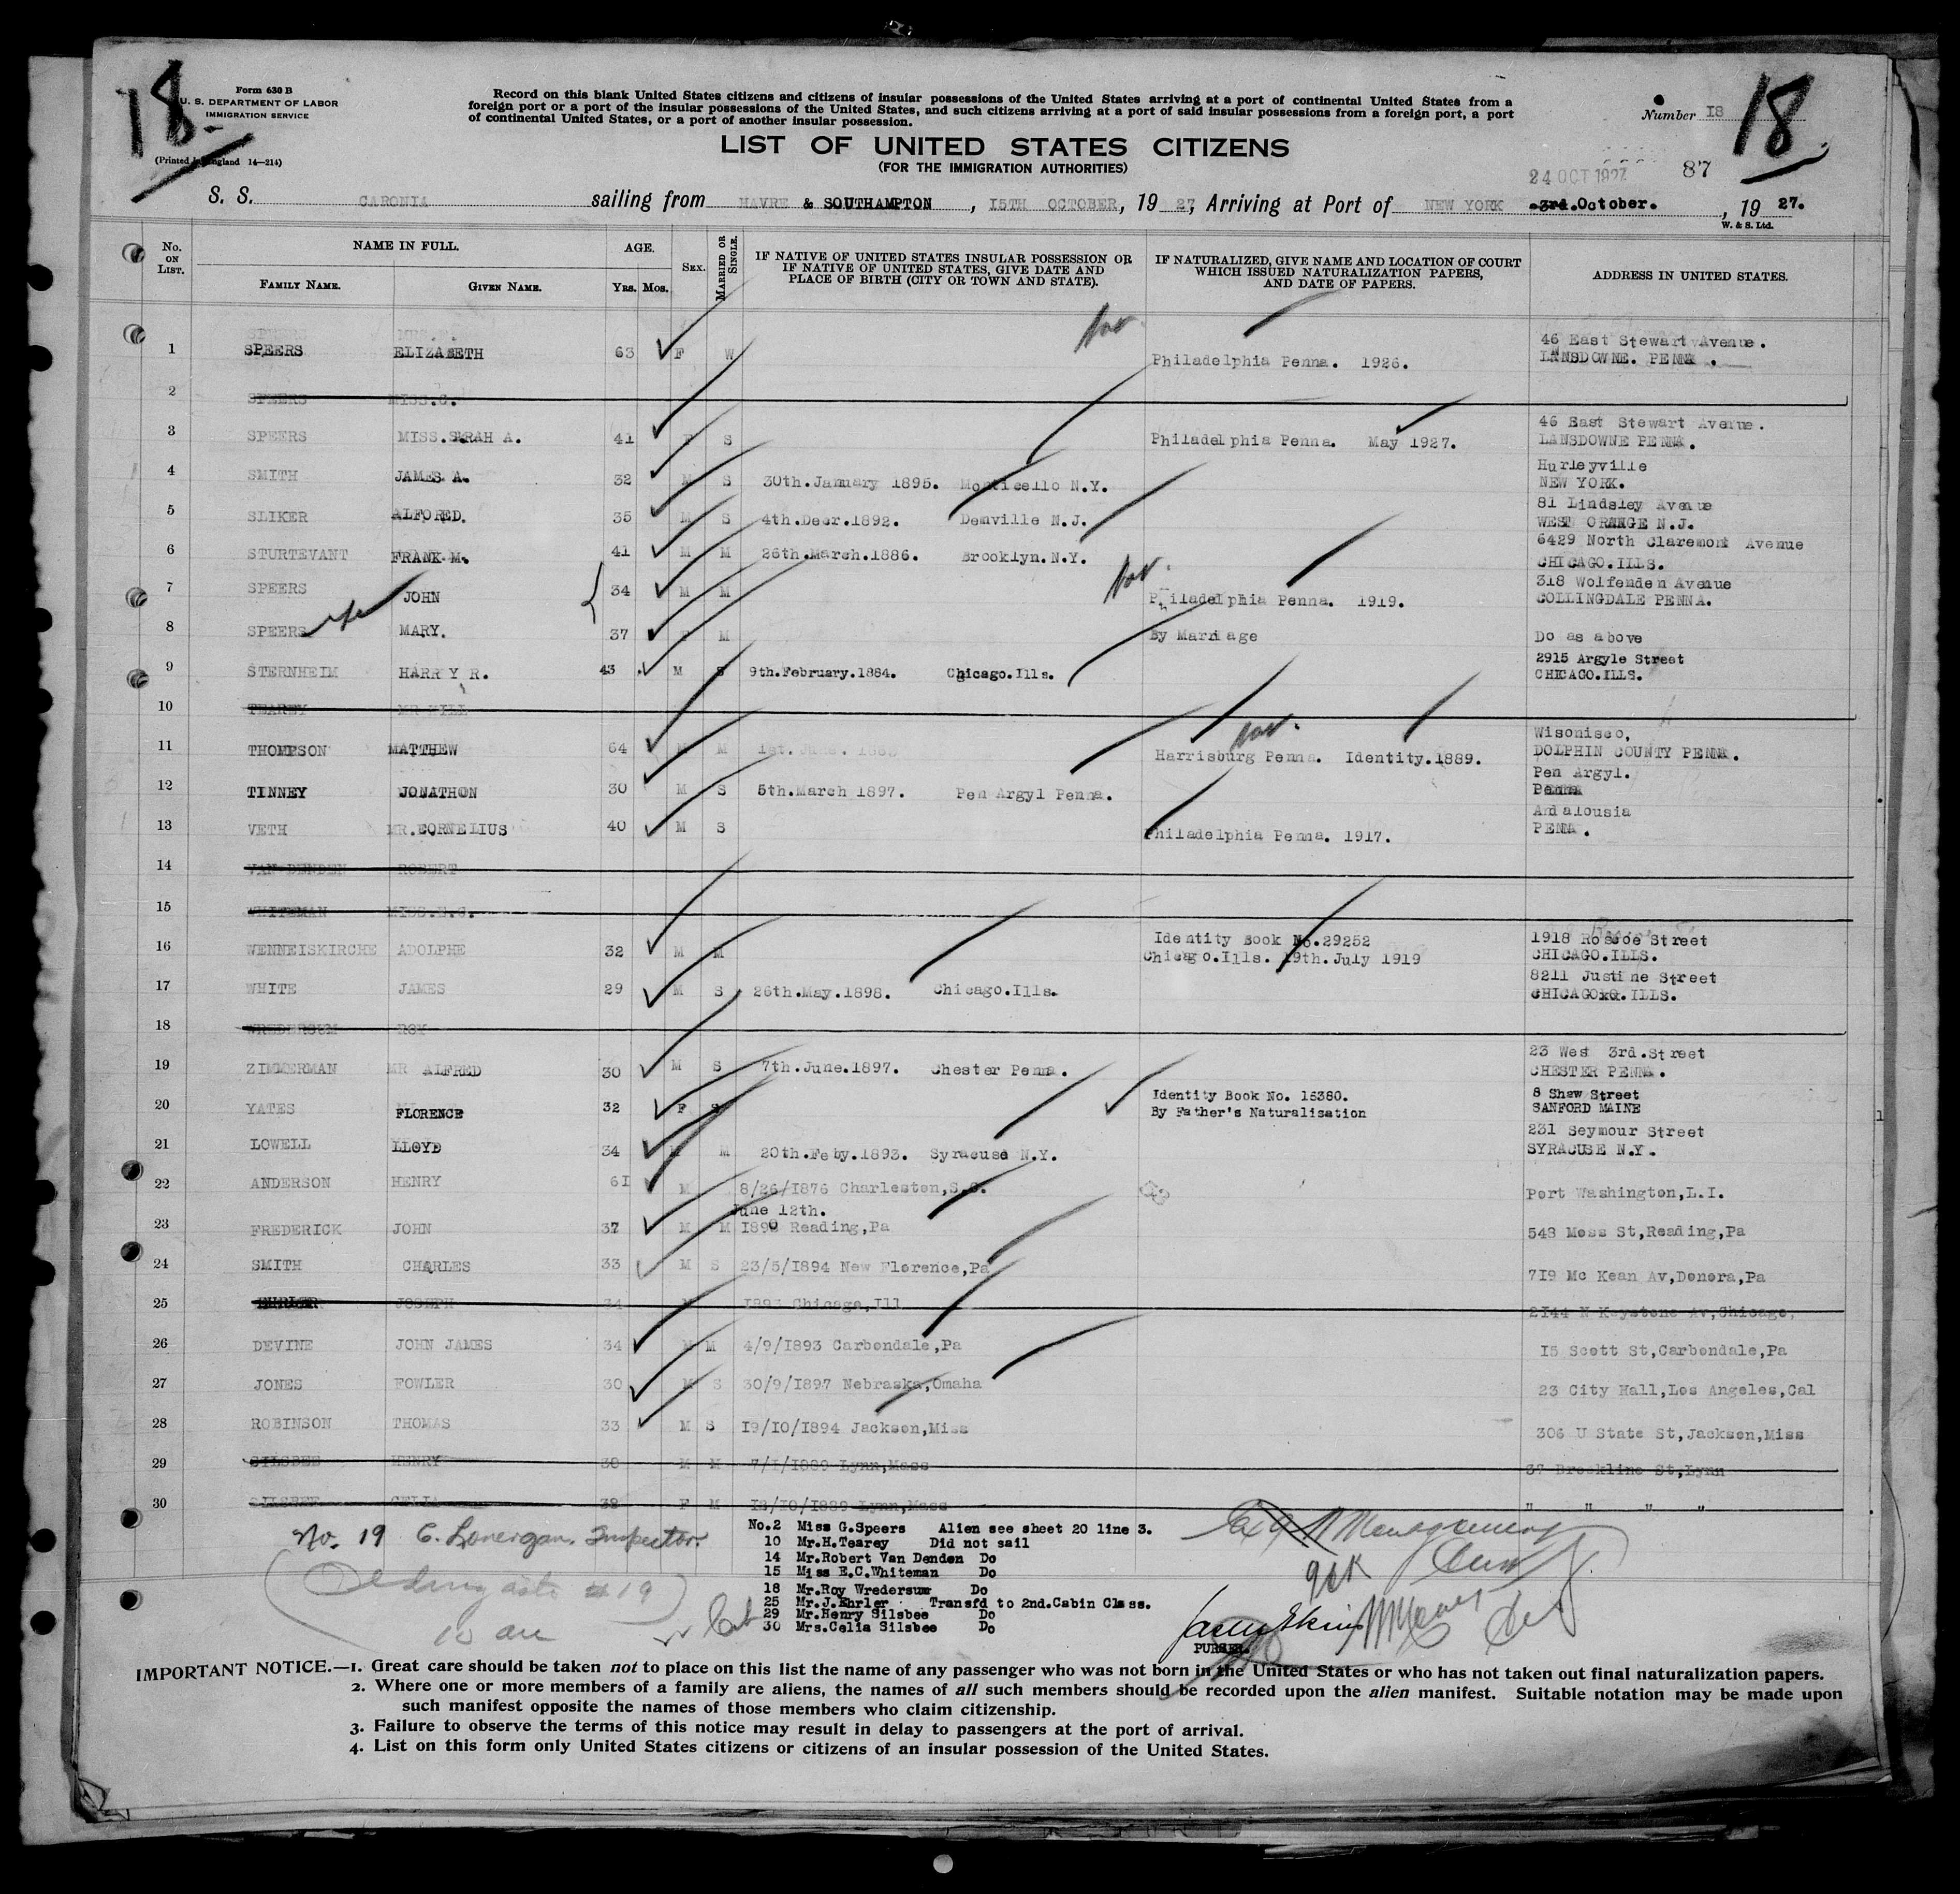 18
Form 630 B
U. S. DEPARTMENT OF LABOR
IMMIGRATION SERVICE
(Printed in England 14—214)
Record on this blank United States citizens and citizens of insular possessions of the United States arriving at a port of continental United States from a
foreign port or a port of the insular possessions of the United States, and such citizens arriving at a port of said insular possessions from a foreign port, a port
of continental United States, or a port of another insular possession.
LIST OF UNITED STATES CITIZENS
(FOR THE IMMIGRATION AUTHORITIES)
Number 18
18
24 OCT 1927
87
S. S. CARONIA sailing from HAVRE & SOUTHAMPTON, 15TH OCTOBER, 1927, Arriving at Port of NEW YORK 3rd.October., 1927.
W. & S. Ltd.
No. ON LIST.
NAME IN FULL.
FAMILY NAME. GIVEN NAME.
AGE.
YRS. MOS.
SEX.
MARRIED OR SINGLE.
IF NATIVE OF UNITED STATES INSULAR POSSESSION OR
IF NATIVE OF UNITED STATES, GIVE DATE AND
PLACE OF BIRTH (CITY OR TOWN AND STATE).
IF NATURALIZED, GIVE NAME AND LOCATION OF COURT
WHICH ISSUED NATURALIZATION PAPERS,
AND DATE OF PAPERS.
ADDRESS IN UNITED STATES.
1 SPEERS ELIZABETH 63 F W Philadelphia Penna. 1926. 46 East Stewart Avenue.
LANSDOWNE. PENNA.
2 SPEERS MISS.G.
3 SPEERS MISS.SARAH A. 41 F S Philadelphia Penna. May 1927. 46 East Stewart Avenue.
LANSDOWNE PENNA.
4 SMITH JAMES A. 32 M S 30th.January 1895. Monticello N.Y. Hurleyville
NEW YORK.
5 SLIKER ALFORED. 35 M S 4th.Decr.1892. Denville N.J. 81 Lindsley Avenue
WEST ORANGE N.J.
6 STURTEVANT FRANK M. 41 M M 26th.March.1886. Brooklyn.N.Y. 6429 North Claremont Avenue
CHICAGO.ILLS.
7 SPEERS JOHN 34 M M Philadelphia Penna. 1919. 318 Wolfenden Avenue
COLLINGDALE PENNA.
8 SPEERS MARY. 37 F M By Marriage Do as above
9 STERNHEIM HARRY R. 43 M S 9th.February.1884. Chicago.Ills. 2915 Argyle Street
CHICAGO.ILLS.
10 TEAREY MR
11 THOMPSON MATTHEW 64 M M 1st. June. Harrisburg Penna. Identity.1889. Wisonisco,
DOLPHIN COUNTY PENNA.
12 TINNEY JONATHON 30 M S 5th.March 1897. Pen Argyl Penna. Pen Argyl.
Penna
13 VETH MR.CORNELIUS 40 M S Philadelphia Penna. 1917. Andalousia
PENNA.
14 VAN DENDEN ROBERT
15 WHITEMAN MISS.E.C.
16 WENNEISKIRCHE ADOLPHE 32 M M Identity Book No.29252
Chicago.Ills. 19th.July 1919 1918 Roscoe Street
CHICAGO.ILLS.
17 WHITE JAMES 29 M S 26th.May.1898. Chicago.Ills. 8211 Justine Street
CHICAGO.ILLS.
18 WREDERSUM ROY
19 ZIMMERMAN MR ALFRED 30 M S 7th.June.1897. Chester Penna. 23 West 3rd.Street
CHESTER PENNA.
20 YATES FLORENCE 32 F S Identity Book No. 15380.
By Father's Naturalisation 8 Shaw Street
SANFORD MAINE
21 LOWELL LLOYD 34 M M 20th.Feby.1893. Syracuse N.Y. 231 Seymour Street
SYRACUSE N.Y.
22 ANDERSON HENRY 61 M 8/26/1876 Charleston,S.C. Port Washington,L.I.
June 12th.
23 FREDERICK JOHN 37 M M 1890 Reading,Pa 548 Moss St,Reading,Pa
24 SMITH CHARLES 33 M S 23/5/1894 New Florence,Pa 719 Mc Kean Av,Donora,Pa
25 JOSEPH 34 M 1893 Chicago,Ill 2144 N Keystone Av,Chicago,
26 DEVINE JOHN JAMES 34 M M 4/9/1893 Carbondale,Pa 15 Scott St,Carbondale,Pa
27 JONES FOWLER 30 M S 30/9/1897 Nebraska,Omaha 23 City Hall,Los Angeles,Cal
28 ROBINSON THOMAS 33 M S 19/10/1894 Jackson,Miss 306 U State St,Jackson,Miss
29 SILSBEE HENRY 38 M M 7/1/1889 Lynn,Mass 37 Brookline St,Lynn
30 SILSBEE CELIA 38 F M 12/10/1889 Lynn,Mass " " " "
No. 19 C. Lonergan. Inspector.
No.2 Miss G.Speers Alien see sheet 20 line 3.
10 Mr.H.Tearey Did not sail
14 Mr.Robert Van Denden Do
15 Miss E.C.Whiteman Do
18 Mr.Roy Wredersum Do
25 Mr.J.Ehrler Transfd to 2nd.Cabin Class.
29 Mr.Henry Silsbee Do
30 Mrs.Celia Silsbee Do
PURSER.
IMPORTANT NOTICE.—1. Great care should be taken not to place on this list the name of any passenger who was not born in the United States or who has not taken out final naturalization papers.
2. Where one or more members of a family are aliens, the names of all such members should be recorded upon the alien manifest. Suitable notation may be made upon
such manifest opposite the names of those members who claim citizenship.
3. Failure to observe the terms of this notice may result in delay to passengers at the port of arrival.
4. List on this form only United States citizens or citizens of an insular possession of the United States.